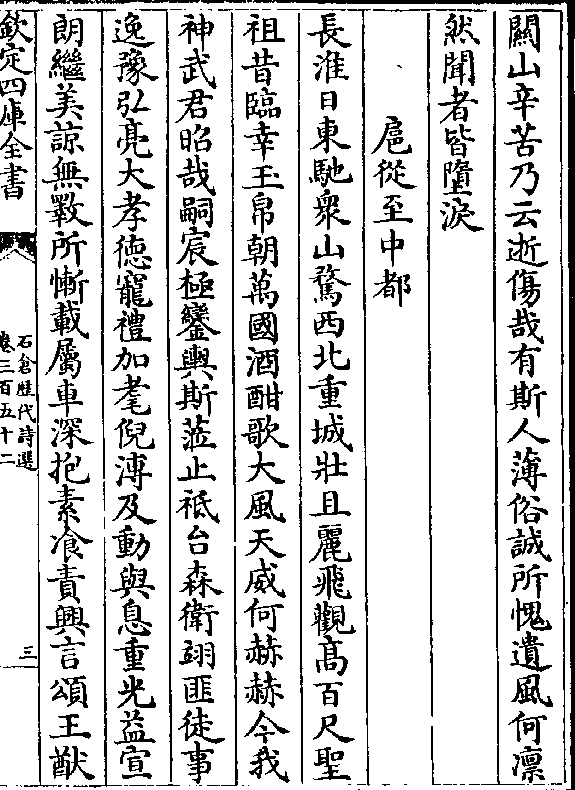 關山辛苦乃云逝傷哉有斯人薄俗誠所愧遺風何凛
然聞者皆墮淚
扈從至中都
長淮日東馳衆山騖西北重城壯且麗飛觀髙百尺聖
祖昔臨幸玉帛朝萬國酒酣歌大風天威何赫赫今我
神武君昭哉嗣宸極鑾輿斯蒞止祗台森衛翊匪徒事
逸豫弘亮大孝德寵禮加耄倪溥及動與息重光益宣
朗繼美諒無斁所慚載屬車深抱素飡責興言頌王猷
欽定四庫全書
石倉歴代詩選
卷三百五十二
三